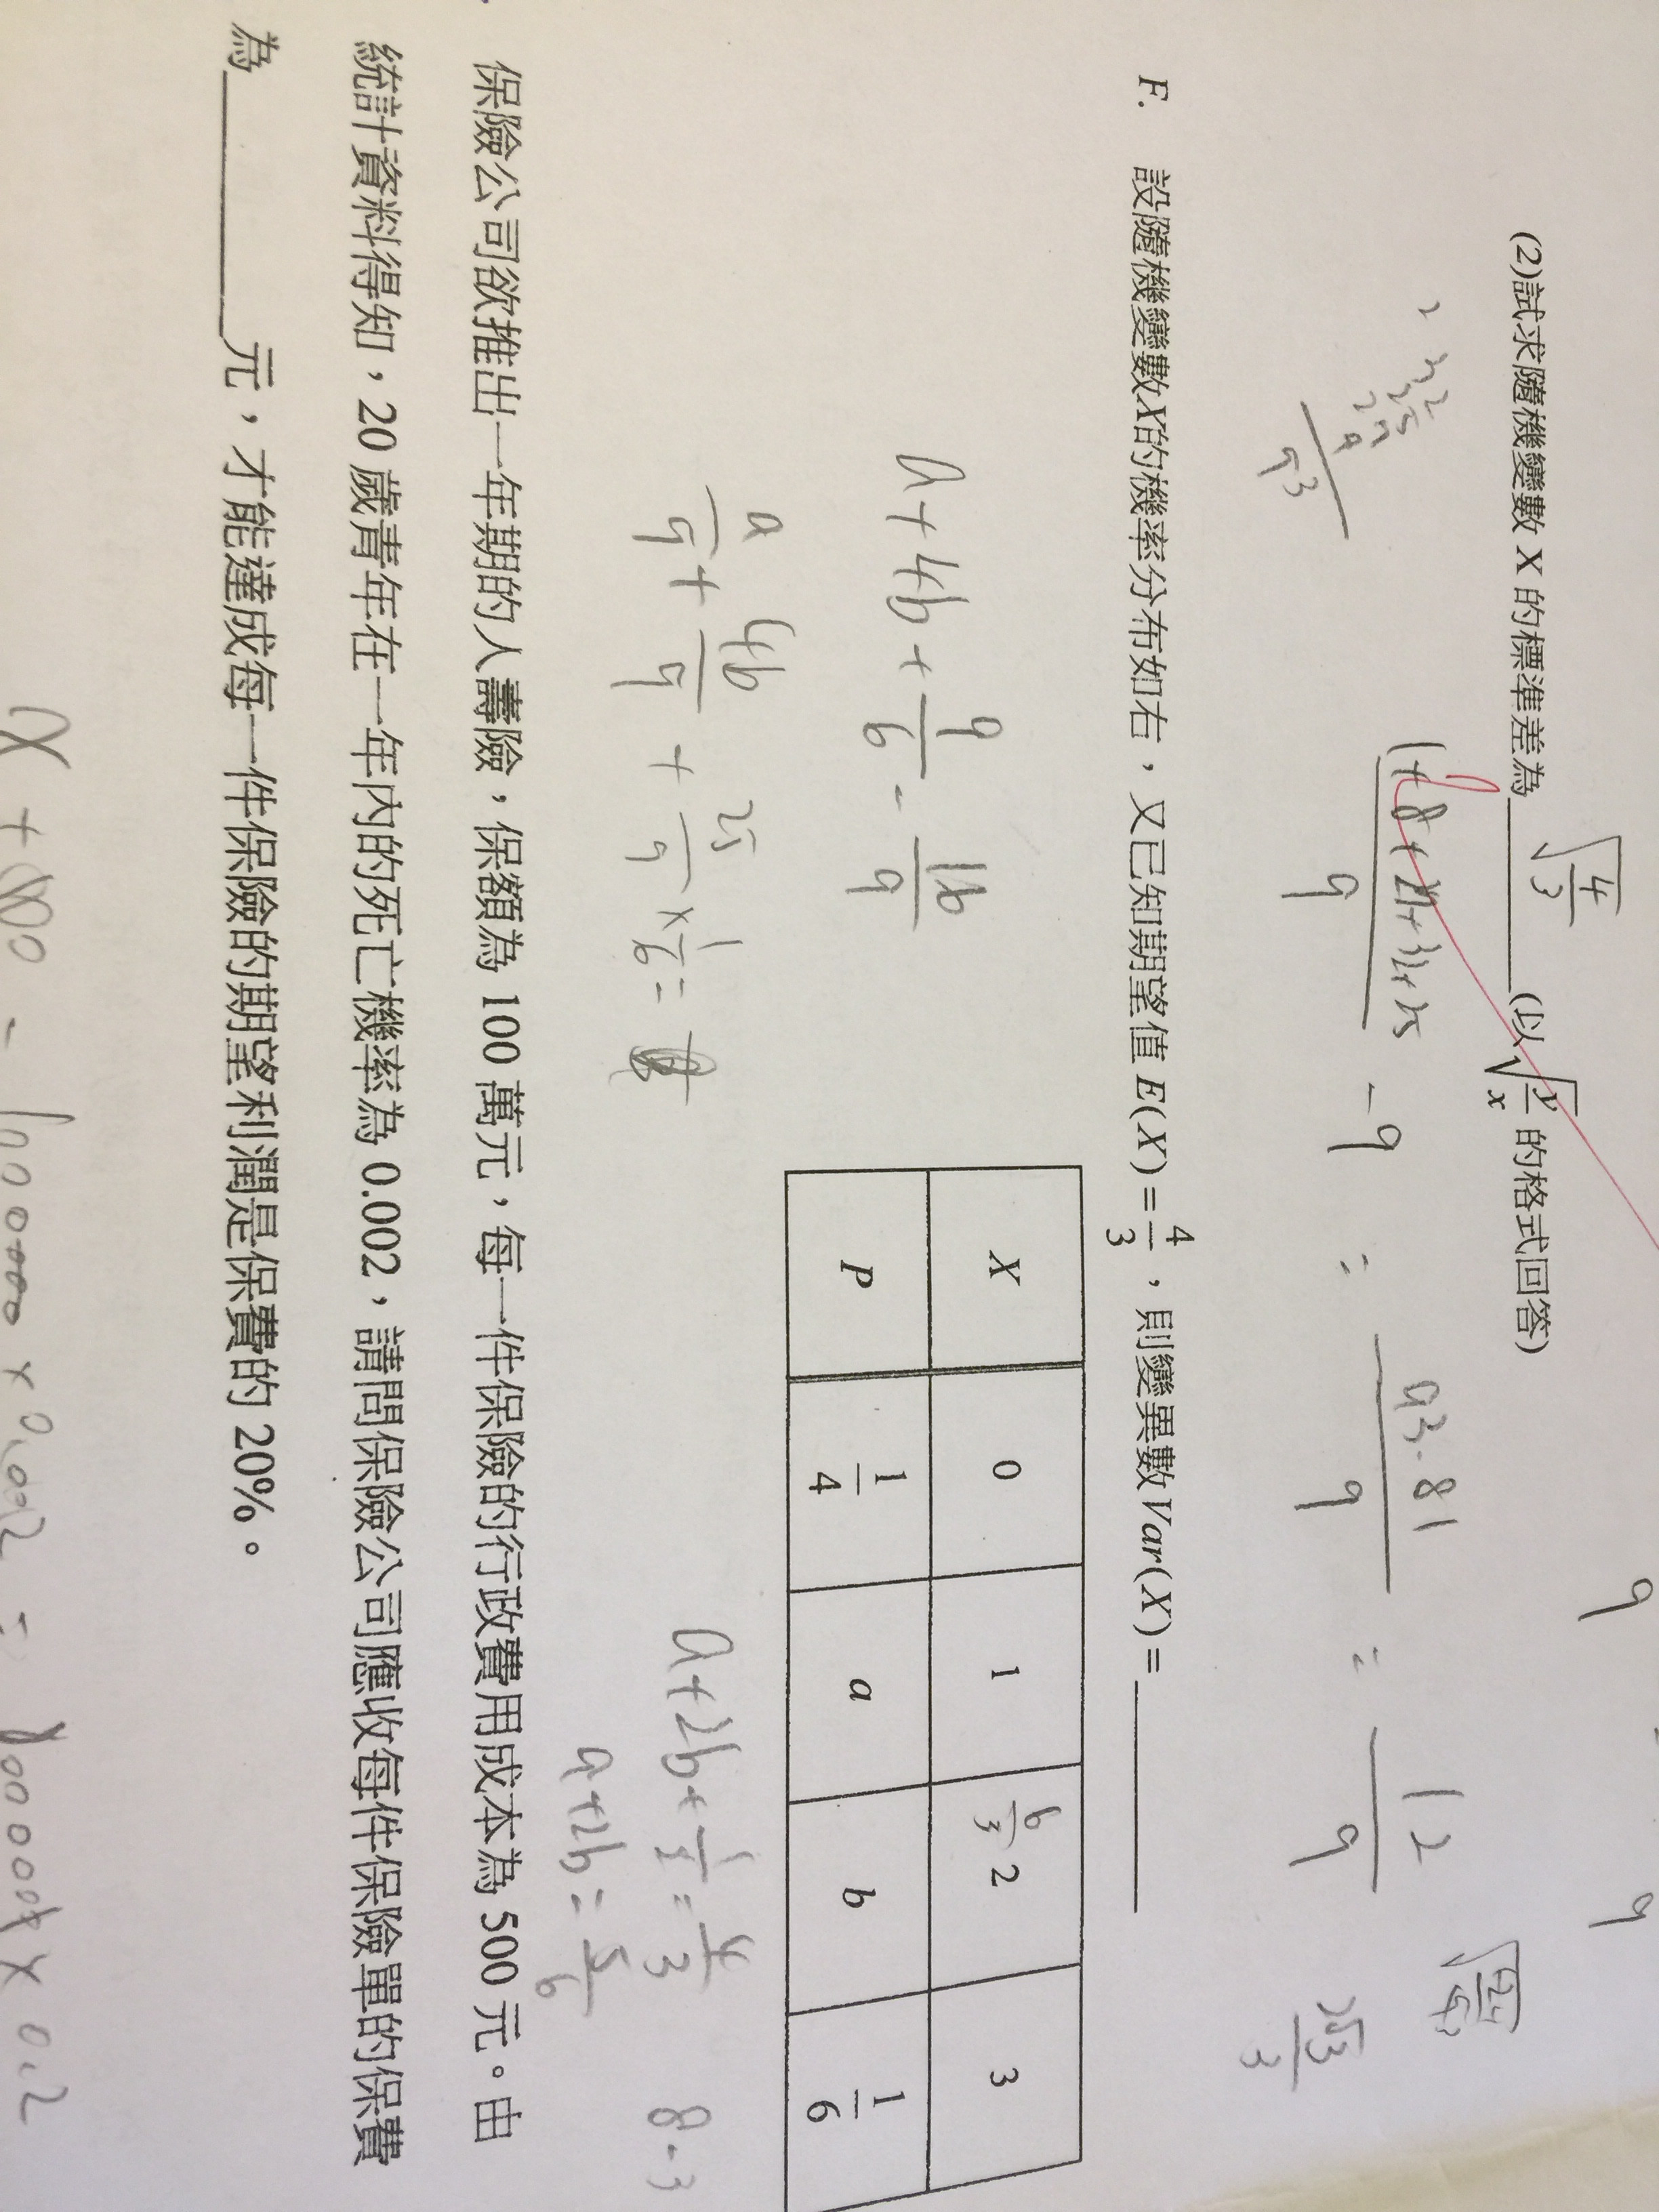 (2)試求隨機變數 X 的標準差為 √(4/3) (以 √(y/x) 的格式回答)
(1+8+27+32+25)/9 - 9 = (93-81)/9 = 12/9
2√3/3
F. 設隨機變數X的機率分布如右，又已知期望值 E(X)=4/3，則變異數Var(X)=______
X 0 1 6/3 2 3
P 1/4 a b 1/6
a+4b+9/6-16/9
a/9+4b/9+25/9×1/6=
a+2b+1/2=4/3
a+2b=5/6
8-3
保險公司欲推出一年期的人壽險，保額為 100 萬元，每一件保險的行政費用成本為 500 元。由
統計資料得知，20 歲青年在一年內的死亡機率為 0.002，請問保險公司應收每件保險單的保費
為______元，才能達成每一件保險的期望利潤是保費的 20%。